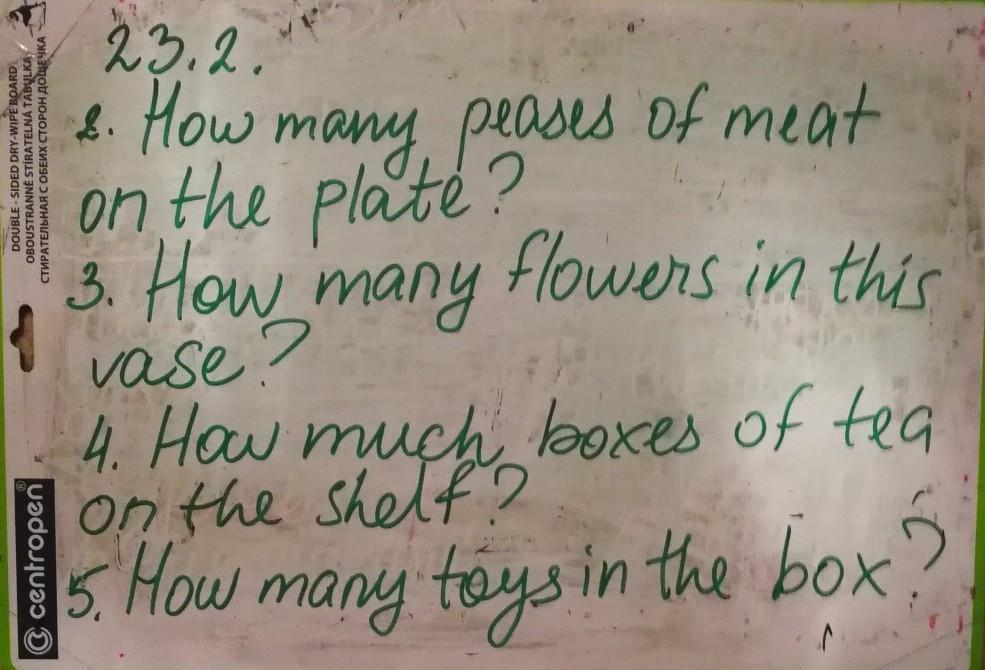 DOUBLE - SIDED DRY-WIPE BOARD
OBOUSTRANNĚ STÍRATELNÁ TABULKA
СТИРАТЕЛЬНАЯ С ОБЕИХ СТОРОН ДОЩЕЧКА
centropen®
23.2.
2. How many peases of meat
on the plate?
3. How many flowers in this
vase?
4. How much boxes of tea
on the shelf?
5. How many toys in the box?